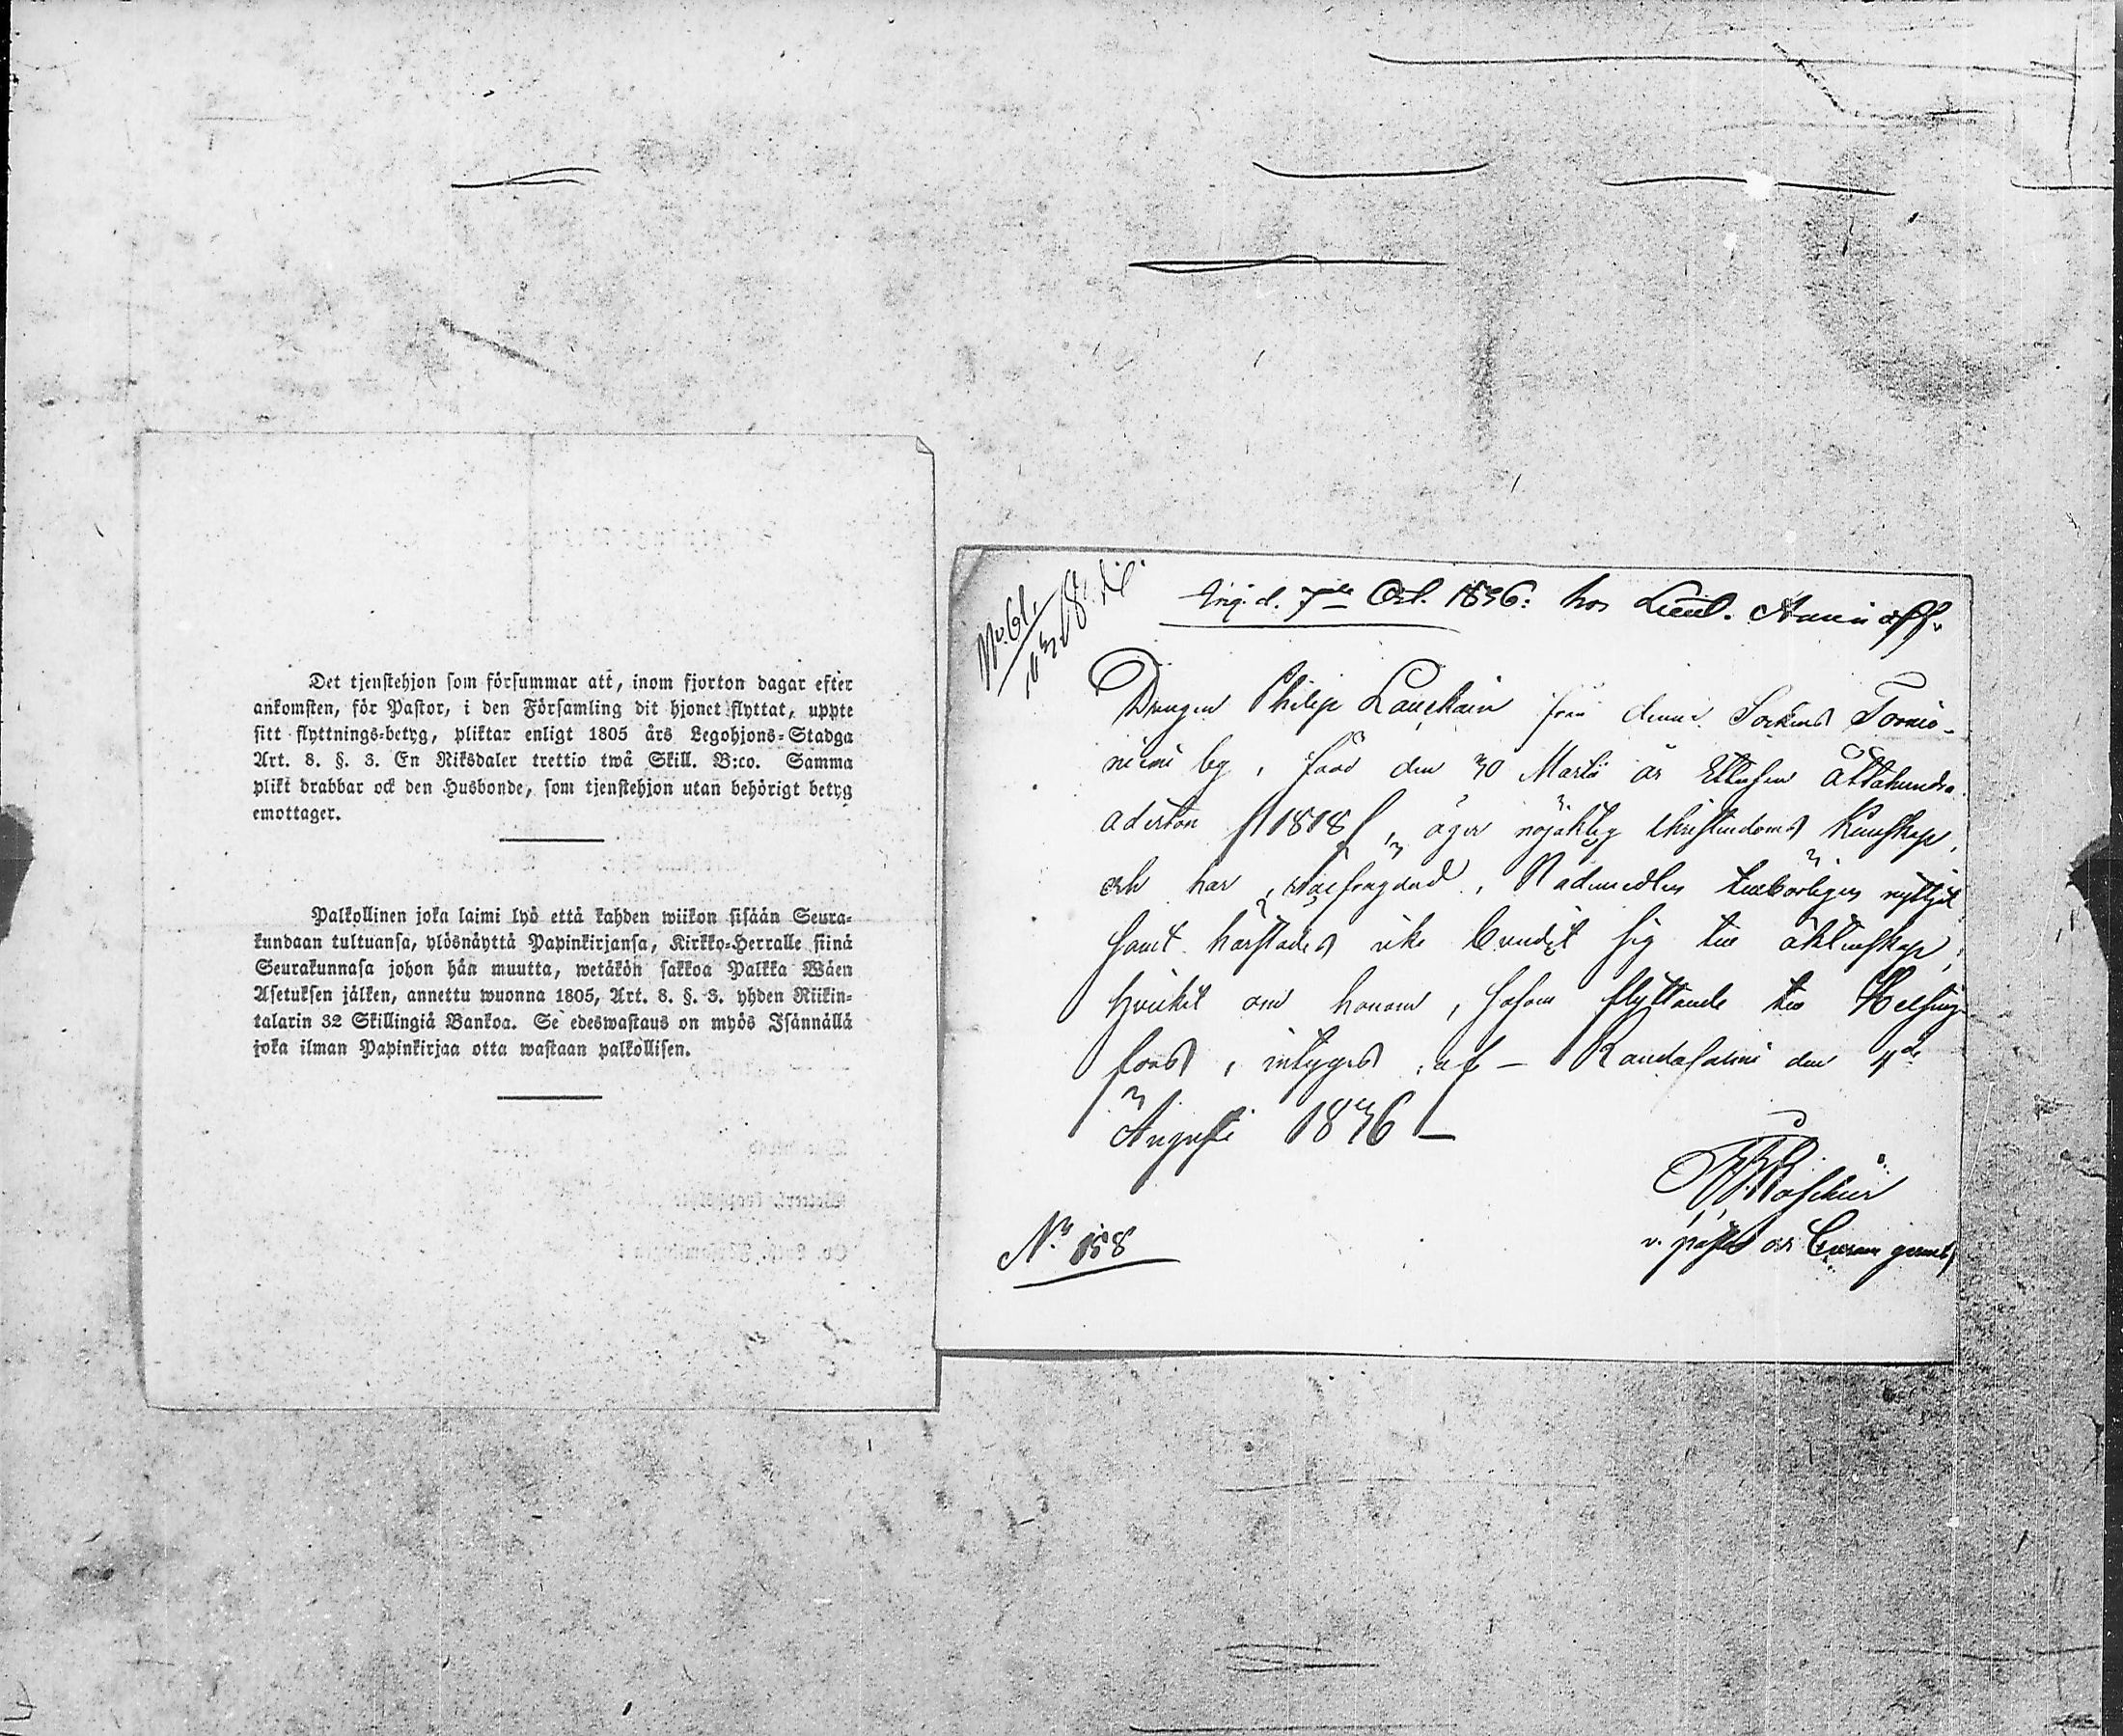 Det tjenstehjon som försummar att, inom fjorton dagar efter
ankomsten, för Pastor, i den Församling dit hjonet flyttat, uppte
sitt flyttnings-betyg, pliktar enligt 1805 års Legohjons-Stadga
Art. 8. §. 3. En Riksdaler trettio twå Skill. B:co. Samma
plikt drabbar ock den Husbonde, som tjenstehjon utan behörigt betyg
emottager.
Palkollinen joka laimi lyö että kahden wiikon sisään Seura-
kundaan tultuansa, ylösnäyttä Papinkirjansa, Kirkko-Herralle siinä
Seurakunnasa johon hän muutta, wetäkön sakkoa Palkka Wäen
Asetuksen jälken, annettu wuonna 1805, Art. 8. §. 3. yhden Riikin-
talarin 32 Skillingiä Bankoa. Se edeswastaus on myös Isännällä
joka ilman Papinkirjaa otta wastaan palkollisen.
No. 61.
d. 7de Oct. 1836. hos Lieut.
Drengen Philip Lauckain från denne Sockens Tornio-
niemi by, född den 30 Martii år Ettusen Åttahundra
aderton /1818/, äger nöjaktig Christendoms Kunskap,
och har wälfrägdad, Nådemedlen tillbörligen nyttjat,
samt härstädes icke bundit sig till äktenskap;
hvilket om honom, såsom flyttande till Helsing-
fors, intygas, af — Randasalmi den 4de
Augusti 1836 —
v. pastor
No 158